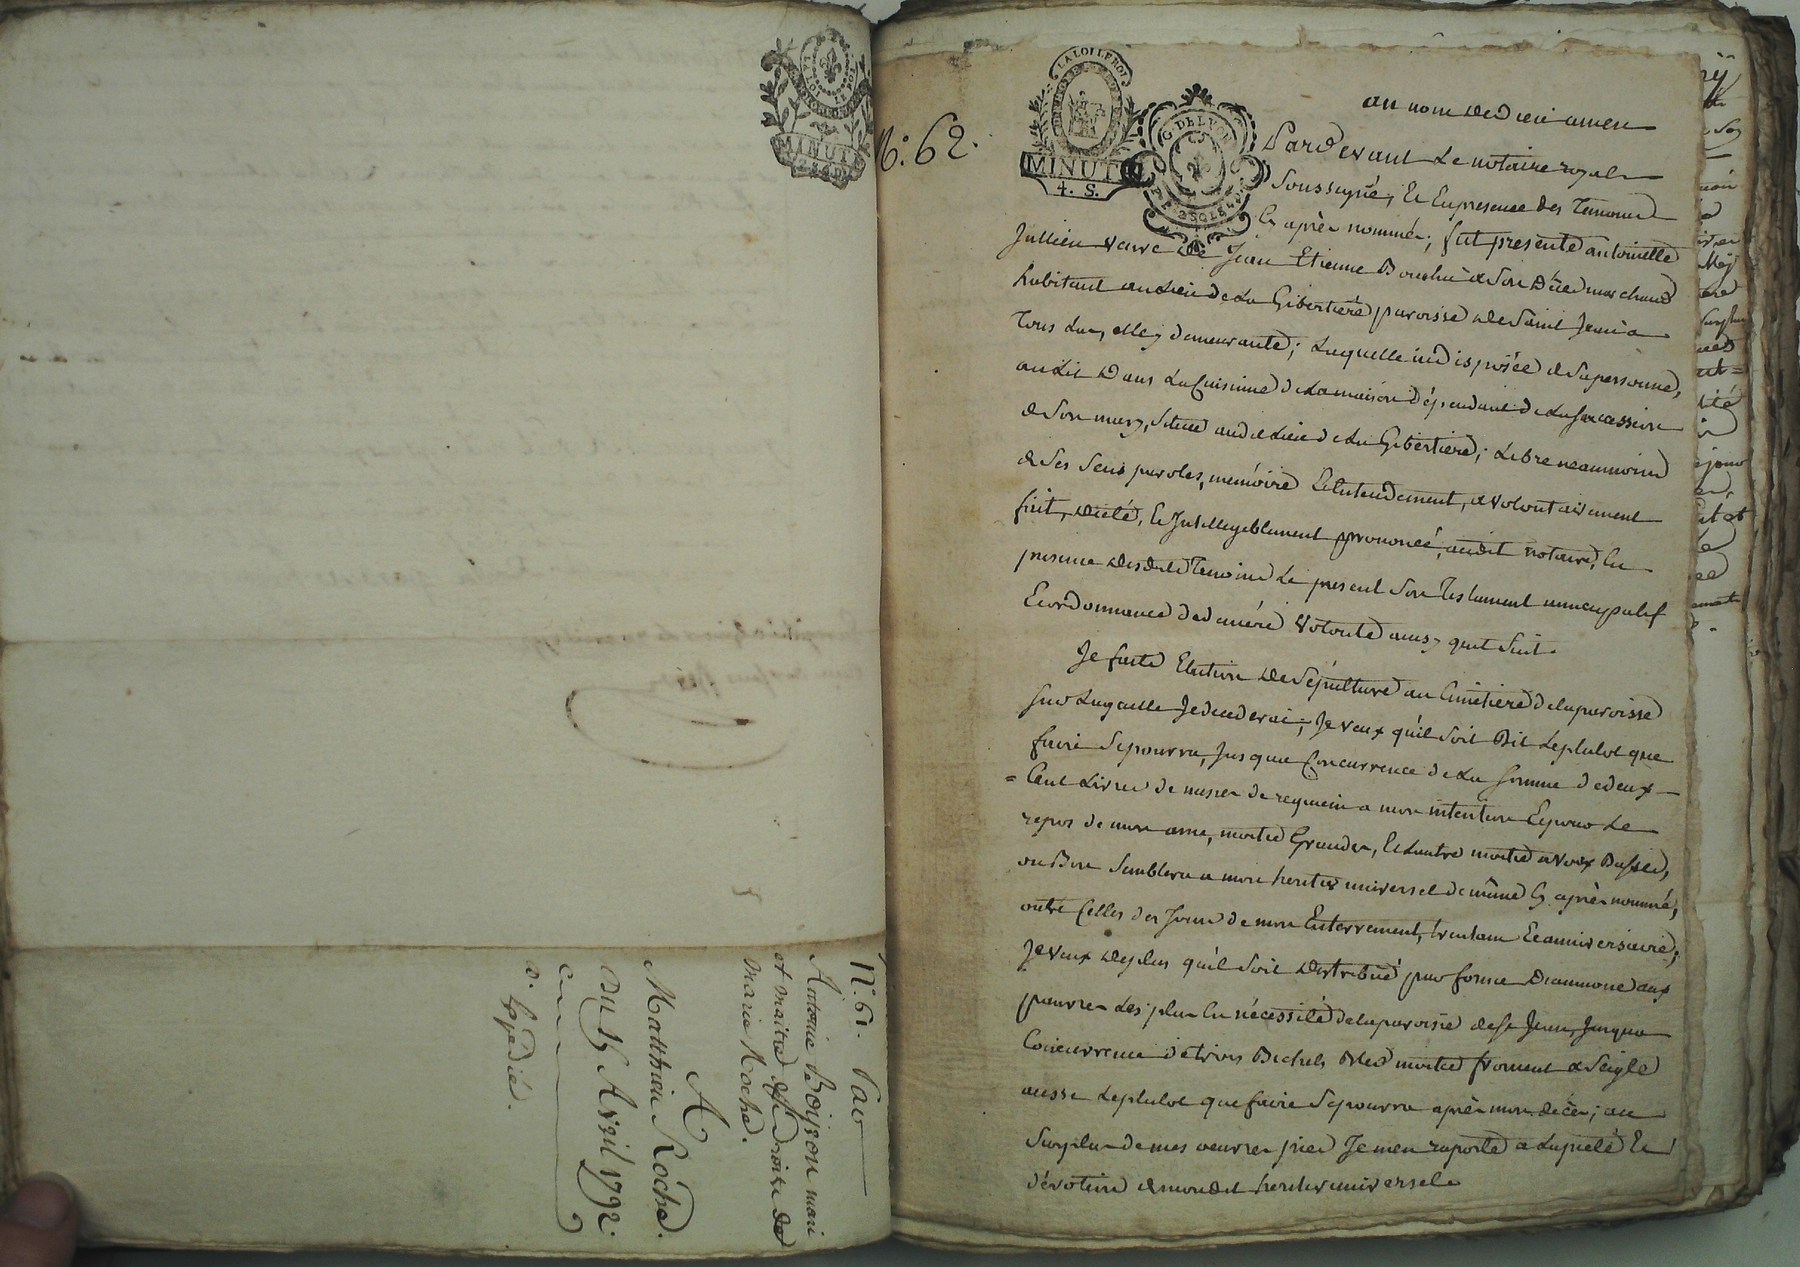 N.° 61. Par
Antoine Boisson mari
et maître des droits de
Marie Roche.
A
Matthieu Roche.
Du 15 Avril 1792.
Expédié.
LA LOI LE ROI
MINUT
4. S.
G. DE LYON
N.° 62.
au nom de dieu amen
Pardevant Le notaire royal
Soussigné, Et En presence des Temoins
Cy après nommés; fut presente antoinette
Jullien veuve de Jean Etienne Bouchu de Son Vivant marchand
habitant au Lieu de La Gibertiere paroisse de Saint Jean a
Tous Las, elle y demeurante; Laquelle indisposée de Sa personne,
au Lit Dans La Cuisinne de La maison dépendant de La Succession
de Son mary, Située aud. Lieu de La Gibertiere; Libre neanmoins
de Ses Sens paroles, mémoire Et Entendement, a volontairement
fait, dicté, Et Intelligiblement prononcé, audit notaire, En
presence desdits Temoins Le present Son Testament nuncupatif
Et ordonnance de derniere Volonté ainsy que Suit.
Je faits Election de Sépulture au Cimetiere de la paroisse
Sur Laquelle Je decederai; Je veux qu'il Soit Dit Leplutot que
faire Sepourra, Jusquau Concurrence de La Somme de deux
= Cent Livres de messes de requiem a mon intention Et pour Le
repos de mon ame, moitié Grandes, Et Lautre moitié a Voix Basse,
ou Bon Semblera a mon heritier universel de même Cy après nommé,
outre Celles des Jours de mon Enterrement, trentain Et anniversaire;
Je Veux de plus qu'il Soit Distribué par forme Daumone aux
pauvres Les plus En nécessité de la paroisse de St Jean, Jusqua
Concurrence de trois Bichets Bled moitié froment & Seigle
aussi Leplutot que faire Sepourra après mon décès; au
Surplus de mes oeuvres pies Je men raporte a La pieté Et
dévotion de mondit heritier universel